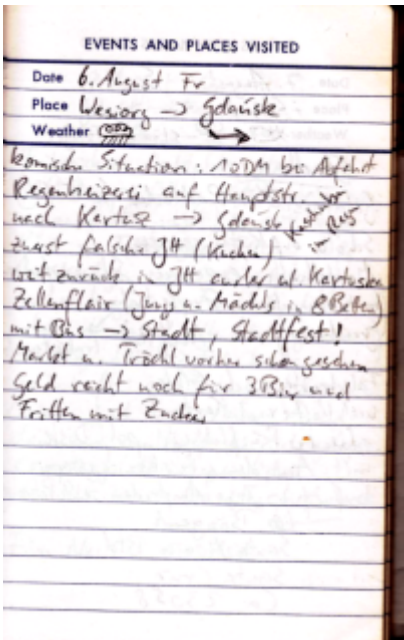 EVENTS AND PLACES VISITED
Date 6. August Fr
Place Wesiory → Gdańsk
Weather
komische Situation: 10DM bei Abfahrt
Regenheizerei auf Hauptstr.
nach Kartuz → Gdańsk Kaschubei im Reg
zuerst falsche JH (Kuchen)
weit zurück in JH an der ul. Kartuska
Zellenflair (Jungs u. Mädels in 8 Betten)
mit Bus → Stadt, Stadtfest!
Markt u. Trödl vorher schon gesehen
Geld reicht noch für 3 Bier und
Fritten mit Zucker